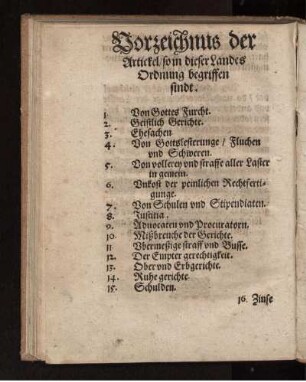 Vorzeichnus der
Artickel / so in dieser Landes
Ordnung begriffen
sindt.
1. Von Gottes Furcht.
2. Geistlich Gerichte.
3. Ehesachen
4. Von Gottslesterunge / Fluchen
vnd Schweren.
5. Von vollerey vnd straffe aller Laster
in gemein.
6. Vnkost der peinlichen Rechtferti-
gunge.
7. Von Schulen vnd Stipendiaten.
8. Justitia.
9. Aduocaten vnd Procuratorn.
10. Mißbreuche der Gerichte.
11. Vbermeßige straff vnd Busse.
12. Der Empter gerechtigkeit.
13. Ober vnd Erbgerichte.
14. Ruhe gerichte
15. Schulden.
16. Zinse